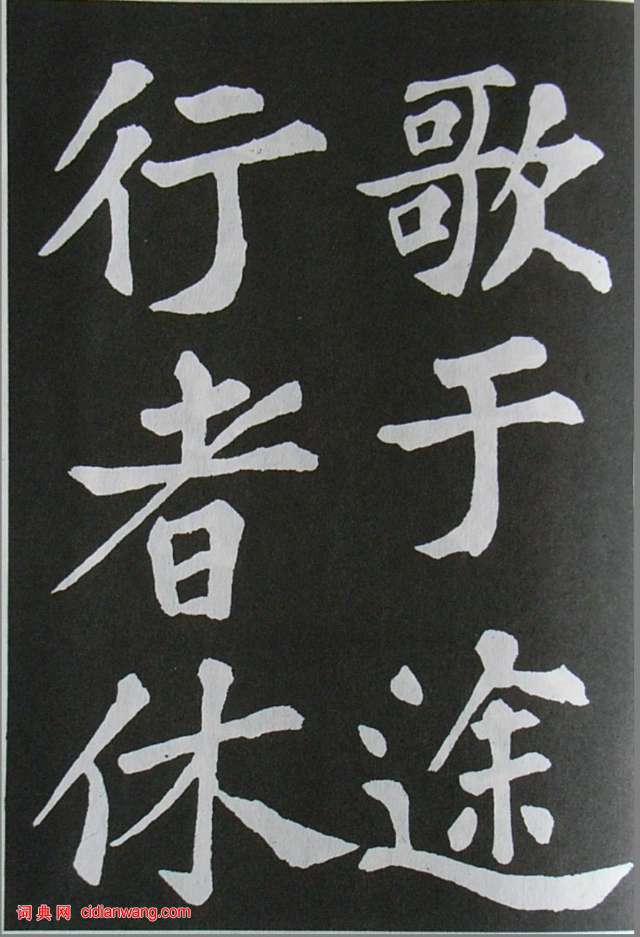 歌于途
行者休
词典网 cidianwang.com